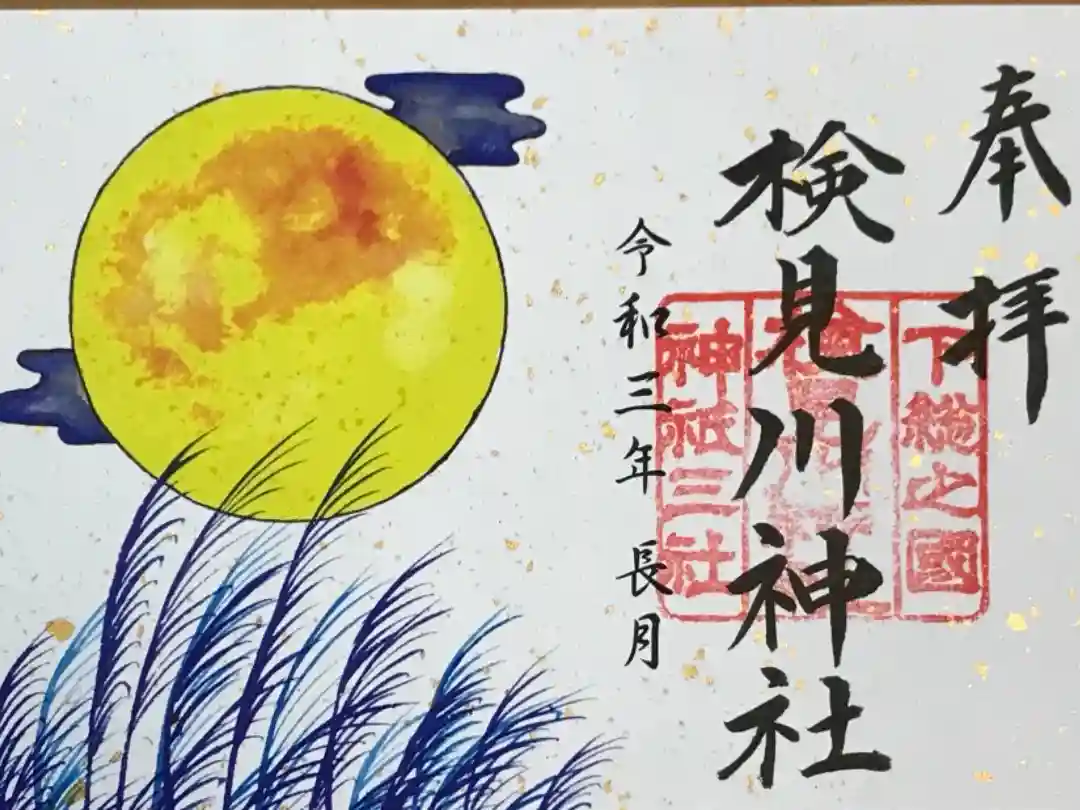 奉拝
検見川神社
令和三年長月
下総之國
神祇三社